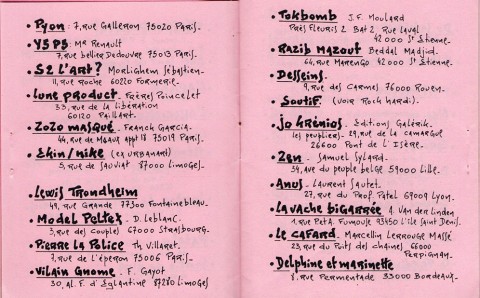 • Pyon : 7, rue Galleron 75020 Paris.
• Y5 P5 : Mr Renault
7, rue bellier Dedouvre 75013 Paris.
• S2 L'ART? Morlighem Sébastien.
11, rue Roche 60220 Formerie.
• Lune product. Frères Poincelet
33, rue de la libération
60120 Paillart.
• Zozo masqué. Franck Garcia.
44, rue de Meaux appt 18 75019 Paris.
• Ekin/nike (ex urbanart)
5, rue de Sauviat 87000 Limoges.
• Lewis Trondheim
49, rue Grande 77300 Fontainebleau.
• Model Peltex. D. Leblanc.
3, rue des couples 67000 Strasbourg.
• Pierre La Police. Th. Villaret.
7, rue de l'éperon 75006 Paris.
• Vilain Gnome. F. Gayot
30, Al. F. d'Eglantine 87280 Limoges
• Tokbomb J.F. Moulard
Près Fleuris 2 Bat 2 Rue Laval
42000 St Etienne.
• Razib Mazout Beddal Madjid.
64, rue Marengo 42000 St Etienne.
• Desseins.
9, rue des Carmes 76000 Rouen.
• Soutif. (voir Rock hardi).
• Jo Krénios. Editions Galérik.
les peupliers. 29, rue de la Camargue
26600 Pont de l'Isère.
• Zen. Samuel Sylard.
34, av du peuple belge 59000 Lille.
• Anus. Laurent Sautet.
27, rue du Prof. Patel 69009 Lyon.
• La vache bigarrée A. Van der Linden
1, rue Pet A. Fumouse 93450 L'Ile Saint Denis.
• Le cafard. Marcellin Lerrouge Massé
23, rue du Puits des chaines 66000
Perpignan.
• Delphine et marinette
8, rue Permentade 33000 Bordeaux.